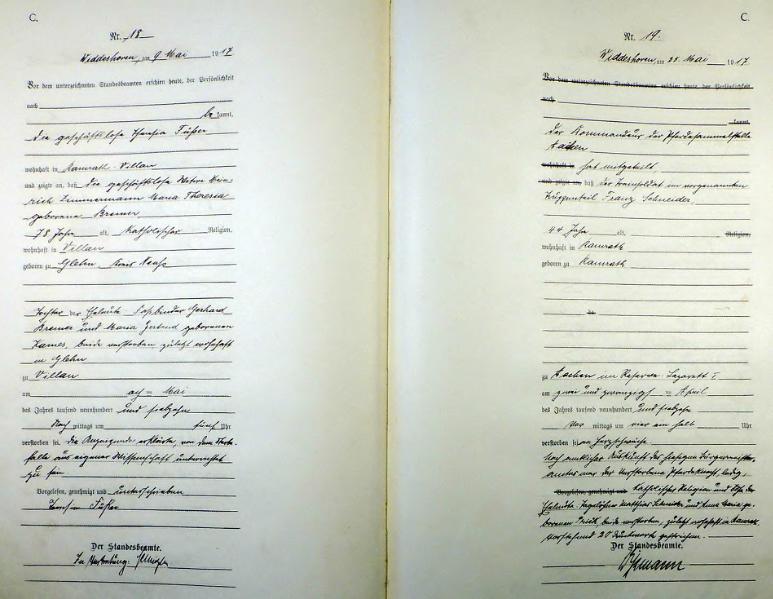 C.
Nr. 18
Widdeshoven, am 9 Mai 1917
Vor dem unterzeichneten Standesbeamten erschien heute, der Persönlichkeit
nach
be kannt,
die geschäftslose Theresia
wohnhaft in Ramrath-Villau
und zeigte an, daß die geschäftslose Witwe Hein-
rich Zimmermann Maria Theresia
geborene Bremer
78 Jahre alt, katholischer Religion,
wohnhaft in Villau
geboren zu Glehn Kreis Neuß
Tochter der Eheleute Faßbinder Gerhard
Bremer und Maria Gertrud geborenen
beide verstorben zuletzt wohnhaft
in Glehn
zu Villau
am acht = Mai
des Jahres tausend neunhundert und siebzehn
Nach mittags um fünf Uhr
verstorben sei. Die Anzeigende erklärte, von dem Sterbe-
falle aus eigener Wissenschaft unterrichtet
zu sein
Vorgelesen, genehmigt und unterschrieben
Der Standesbeamte.
In Vertretung:
C.
Nr. 19.
Widdeshoven, am 23. Mai 1917.
Vor dem unterzeichneten Standesbeamten erschien heute, der Persönlichkeit
nach
kannt,
Der Kommandeur der Pferdesammelstelle
Aachen
wohnhaft in hat mitgeteilt
und zeigte an, daß der Trainsoldat im vorgenannten
Truppenteil Franz Schneider,
44 Jahre alt, Religion,
wohnhaft in Ramrath
geboren zu Ramrath
zu Aachen im Reserve-Lazarett I
am zwei und zwanzigst = April
des Jahres tausend neunhundert und siebzehn
Vor mittags um vier ein halb Uhr
verstorben sei an Herzschwäche
Nach amtlicher Auskunft des hiesigen Bürgermeister-
amtes war der Verstorbene Pferdeknecht, ledig,
Vorgelesen, genehmigt und katholischer Religion und Sohn der
Eheleute Tagelöhner Matthias Schneider und Anna Maria ge-
borenen beide verstorben, zuletzt wohnhaft in Ramrath.
Vorstehend 20 Druckworte gestrichen.
Der Standesbeamte.